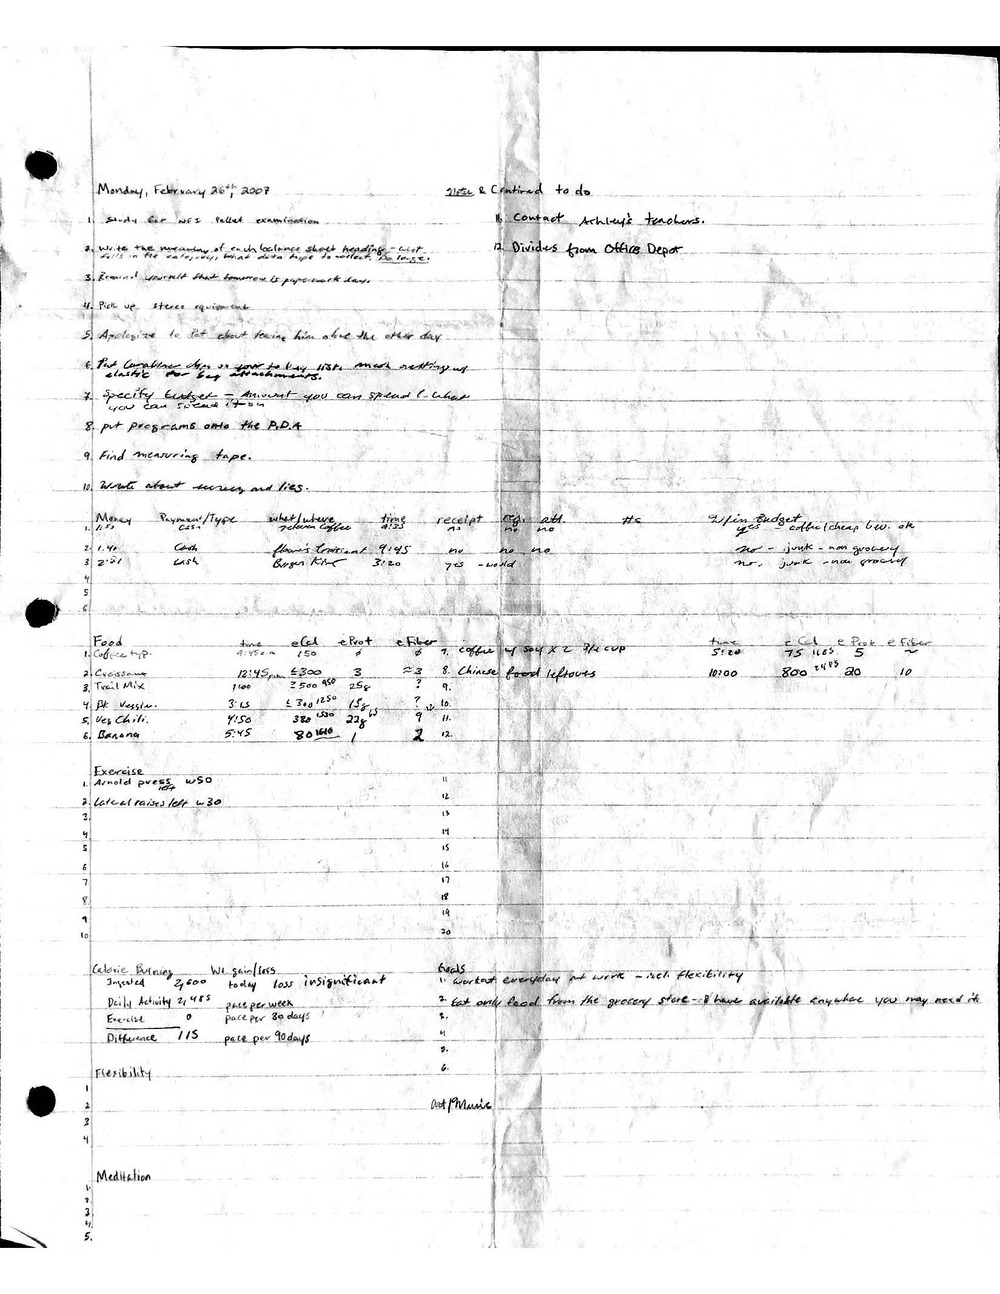 Monday, February 26th, 2007
Notes & Continued to do
1. Study for NFS Pallet examination
11. Contact Ashley's teachers.
2. Write the meaning of each balance sheet heading - what
falls in the category, what data type to collect. Do large.
12. Divides from Office Depot
3. Remind yourself that tomorrow is paperwork day.
4. Pick up stereo equipment
5. Apologize to Pat about leaving him alone the other day
6. Put Carabiner clips on your to buy list. mesh netting w/
elastic for bag attachments.
7. Specify budget - Amount you can spend & what
you can spend it on
8. put programs onto the P.D.A
9. Find measuring tape.
10. Write about and lies.
Money Payment/Type what/where time receipt reg. att. #s W/in Budget
1. Cash Coffee 9:35 no no no yes - coffee/cheap bev. ok
2. 1.40 Cash Croissant 9:45 no no no no - junk - non grocery
3 2:21 Cash Burger King 3:20 yes - world no. junk - non grocery
4
5
6
Food time eCal eProt eFiber
time eCal eProt eFiber
1. Coffee typ. 9:45am 150 ø ø
7. coffee w/ soy x 2 3/4 cup 5:20 75 1685 5 ~
2. Croissant 12:45pm ≤300 3 ≈3
8. Chinese food leftovers 10:00 800 2485 20 10
3. Trail Mix 1:00 ≥500 950 25g ?
9.
4. BK Veggie. 3:15 ≤300 1250 15g ?
10.
5. Veg Chili. 4:50 380 1530 22g 9
11.
6. Banana 5:45 80 1610 1 2
12.
Exercise
1. Arnold press left w50
11
2. Lateral raises left w30
12
3.
13
4
14
5
15
6
16
7
17
8
18
9
19
10
20
Calorie Burning Wt gain/loss
Goals
Ingested 2,600 today loss insignificant
1. Workout everyday at work - incl. flexibility
Daily Activity 2,485 pace per week
2. Eat only food from the grocery store - & have available anywhere you may need it
Exercise 0 pace per 30 days
3.
Difference 115 pace per 90 days
4
5.
Flexibility
6.
1
2
Art/Music
3
4
Meditation
1.
2.
3
4.
5.